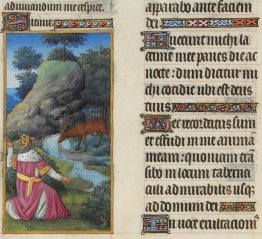 adiuuandum me respice.
apparabo ante faciem
dei
Fuerunt michi la
crime mee panes die ac
nocte: dum dicitur mi
chi cotidie ubi est deus
tuus
Hec recordatus sum
et effudi in me animā
meam: quoniam trā
sibo in locum taberna
culi admirabilis usqꝫ
ad domum dei
In uoce exultacionis